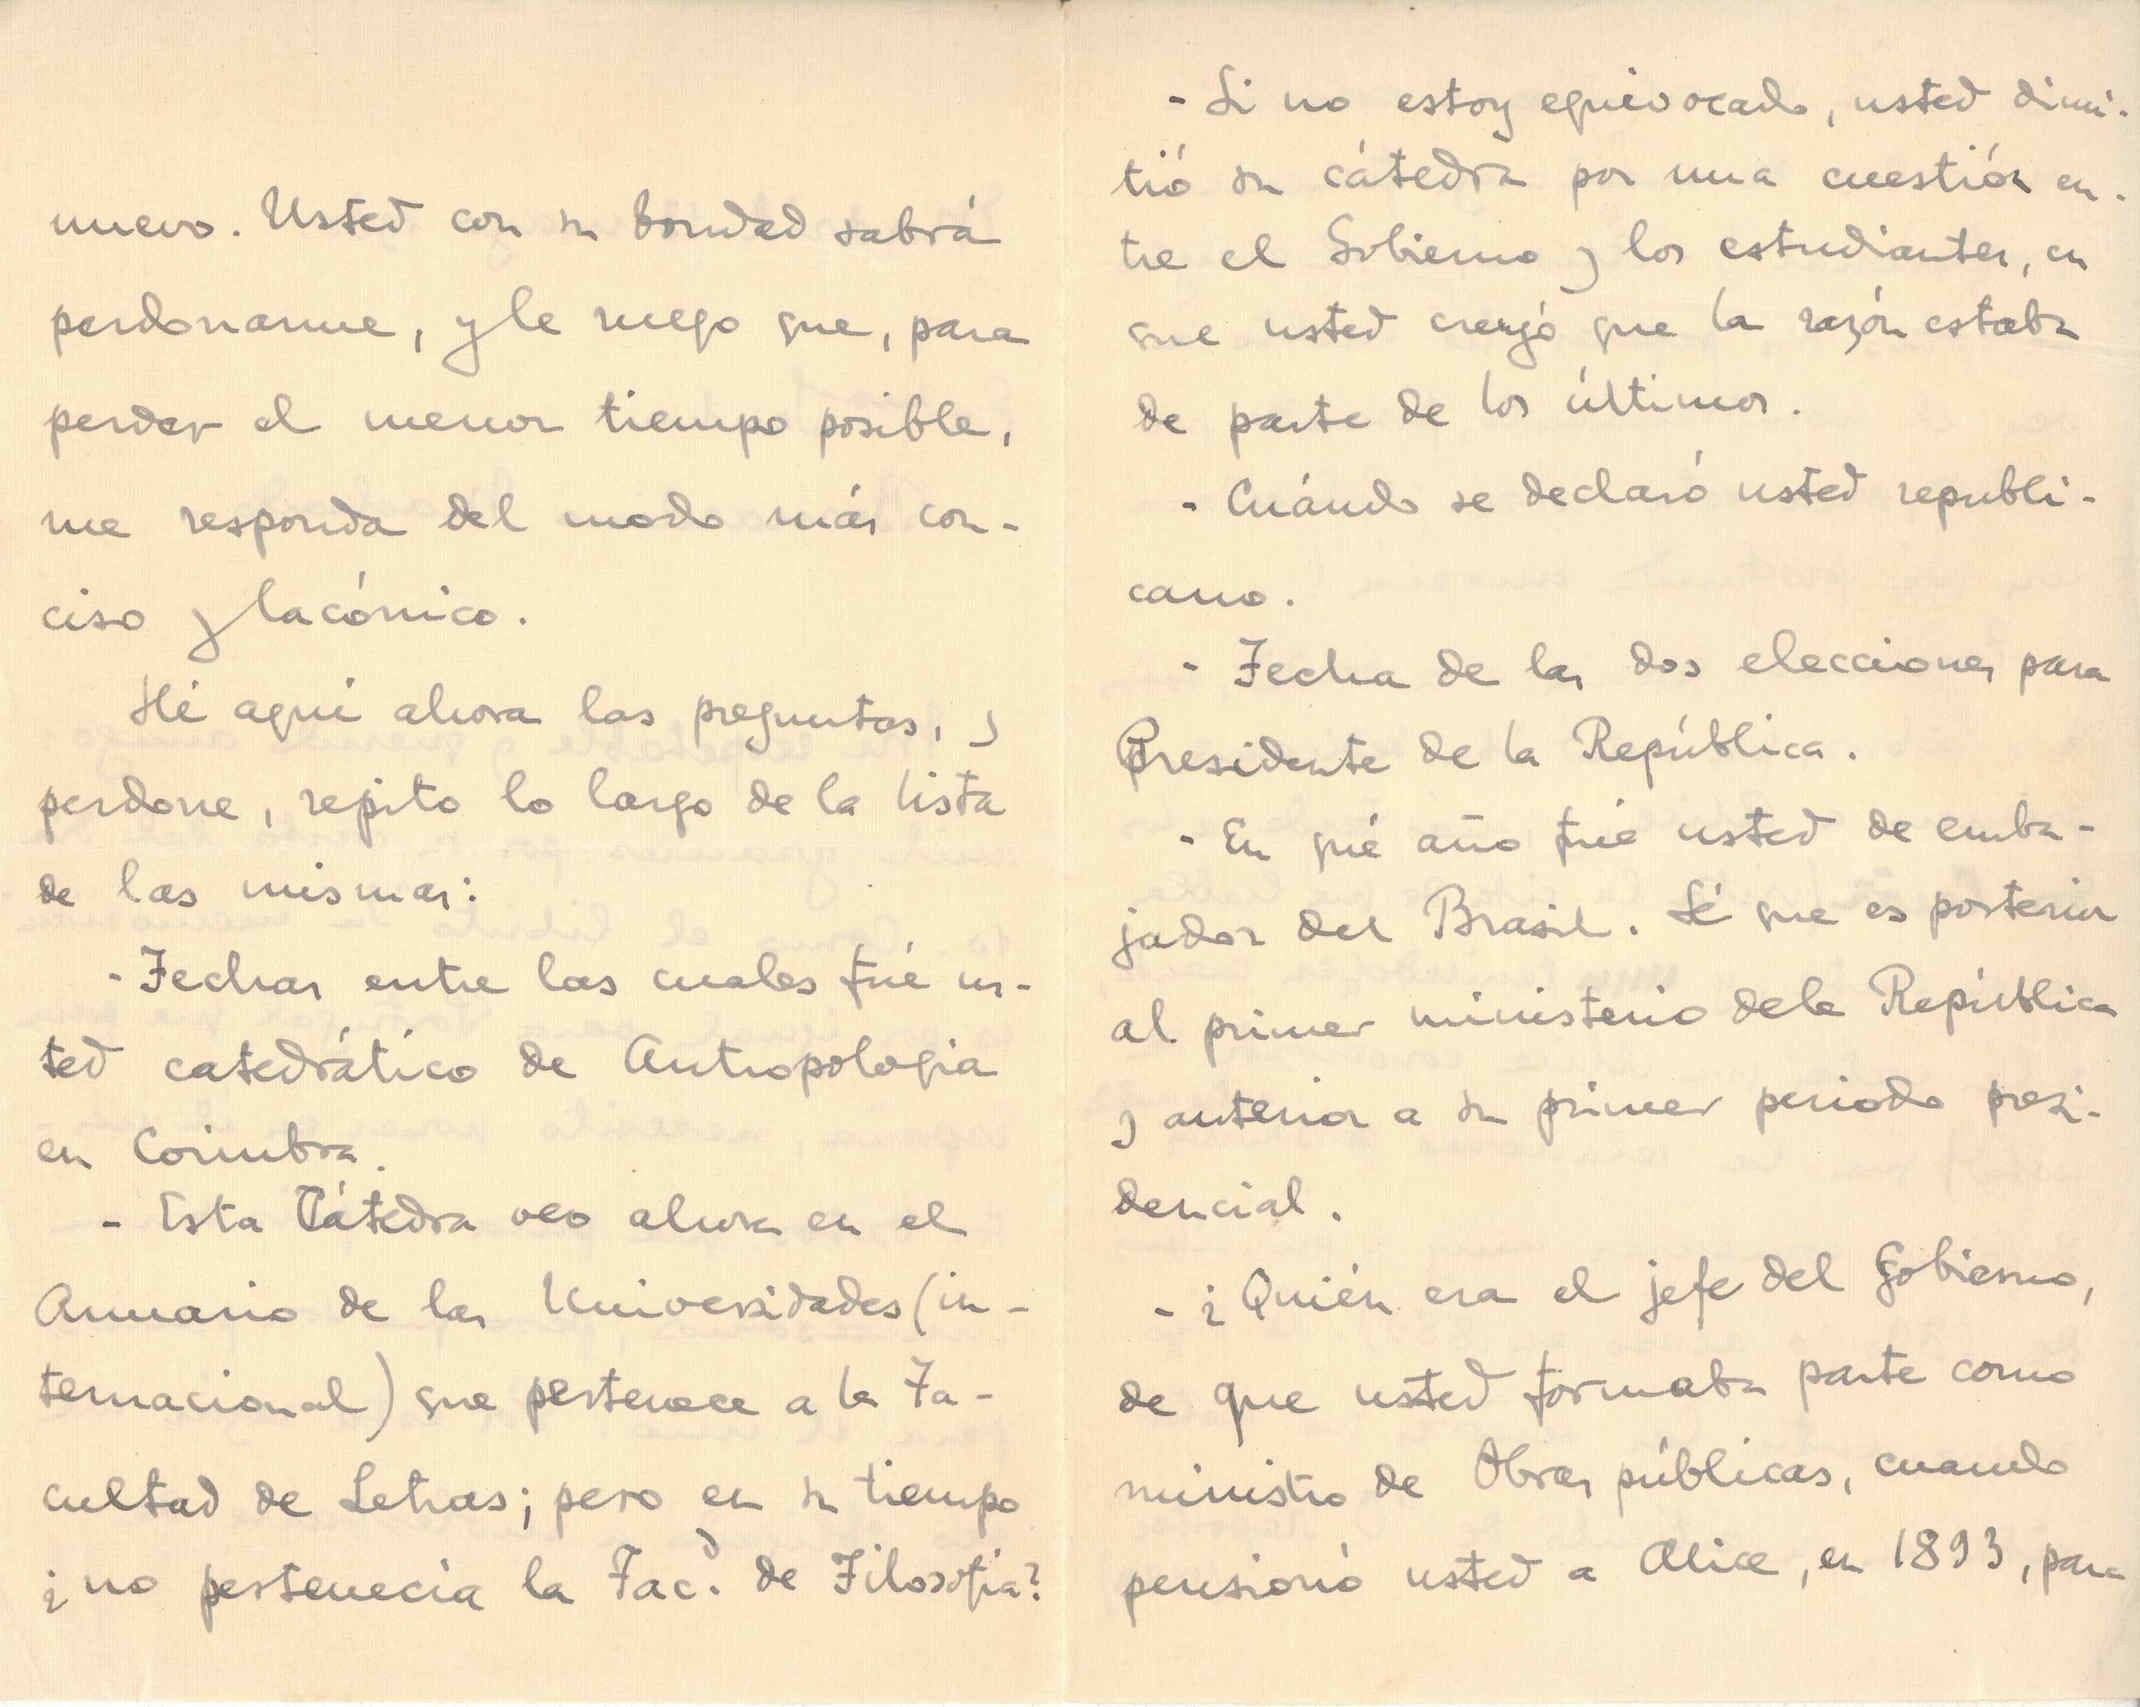 nuevo. Usted con su bondad sabrá
perdonarme, y le ruego que, para
perder el menor tiempo posible,
me responda del modo más con-
ciso y lacónico.
Hé aquí ahora las preguntas, y
perdone, repito lo largo de la lista
de las mismas:
- Fechas entre las cuales fué us-
ted catedrático de Antropologia
en Coimbra.
- Esta Cátedra veo ahora en el
Anuario de las Universidades (in-
ternacional) que pertenece a la Fa-
cultad de Letras; pero en su tiempo
¿no pertenecía la Fac.d de Filosofia?
- Si no estoy equivocado, usted dimi-
tió su cátedra por una cuestión en-
tre el Gobierno y los estudiantes, en
que usted creyó que la razón estaba
de parte de los últimos.
- Cuándo se declaró usted republi-
cano.
- Fecha de las dos elecciones para
Presidente de la República.
- En qué año fué usted de emba-
jador del Brasil. Sé que es posterior
al primer ministerio de la República
y anterior a su primer periodo presi-
dencial.
- ¿Quién era el jefe del Gobierno,
de que usted formaba parte como
ministro de Obras públicas, cuando
pensionó usted a Alice, en 1893, para